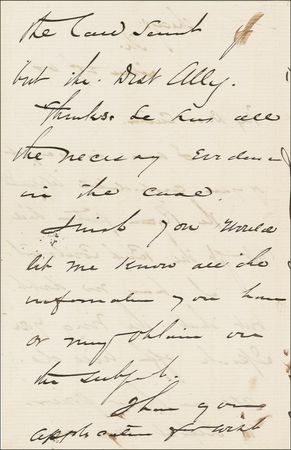 the
but the Dist Atty.
Thinks he has all
the necessary Evidence
in the case.
I wish you would
let me Know all the
information you have
or may obtain on
the subject.
I have your
application for